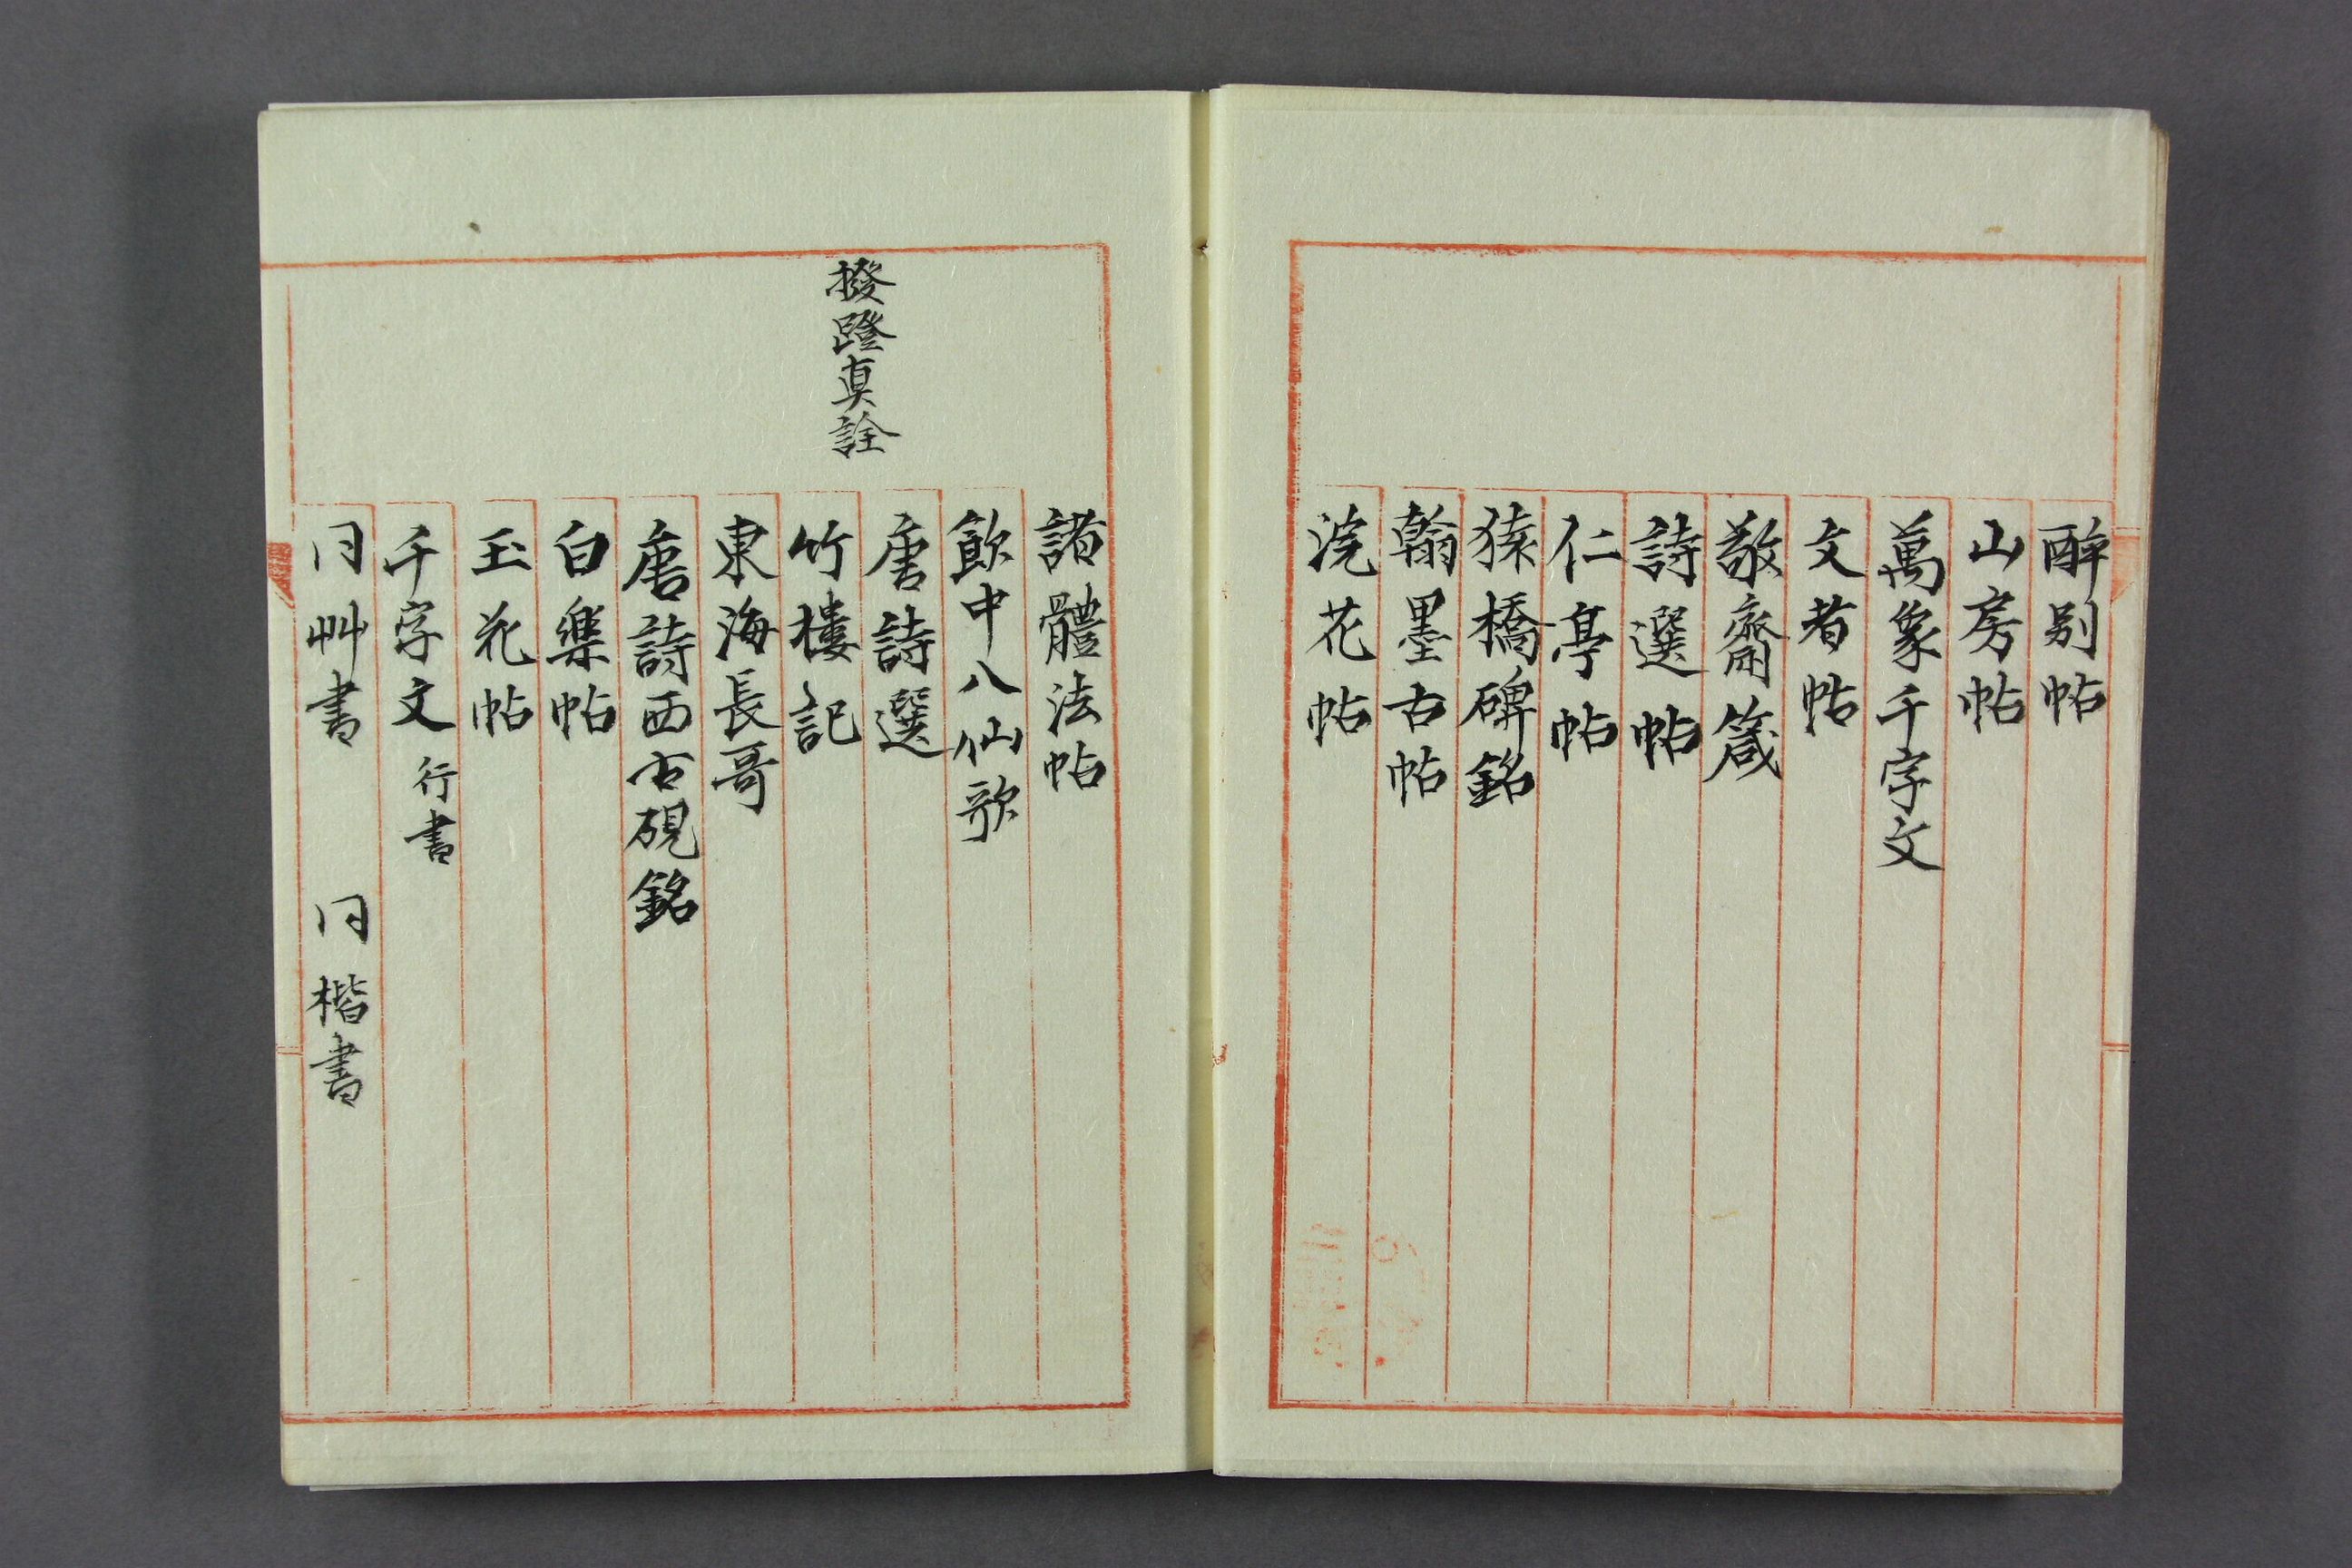 醉別帖
山房帖
萬象千字文
文者帖
敬齋箴
詩選帖
仁亭帖
猿橋碑銘
翰墨古帖
浣花帖
諸體法帖
飲中八仙歌
唐詩選
撥蹬真詮
竹樓記
東海長哥
唐詩西古硯銘
白樂帖
玉花帖
千字文 行書
同艸書 同楷書